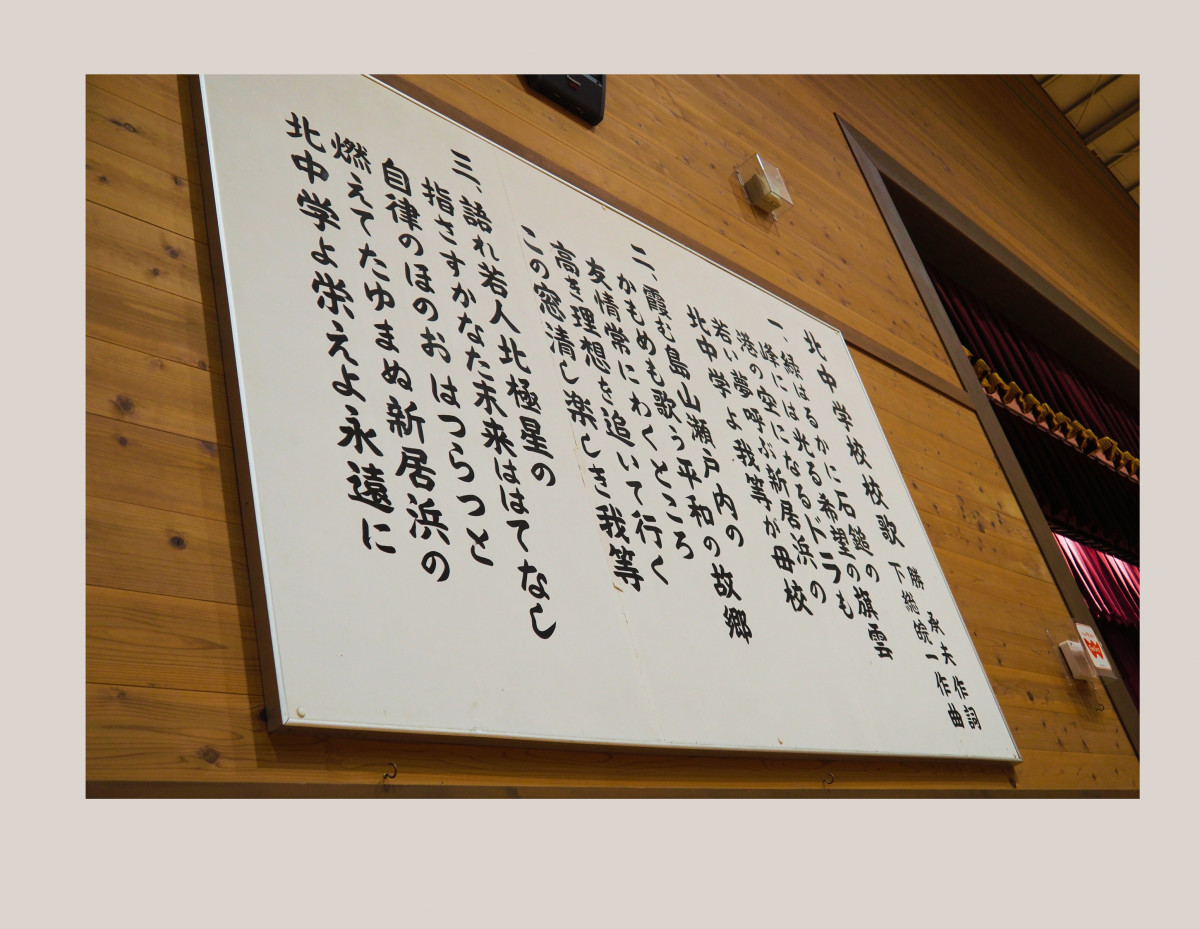 北中学校校歌
勝 承夫 作詞
下総皖一 作曲
一、緑はるかに石鎚の
峰には光る希望の旗雲
港の空になるドラも
若い夢呼ぶ新居浜の
北中学よ我等が母校
二、霞む島山瀬戸内の
かもめも歌う平和の故郷
友情常にわくところ
高き理想を追いて行く
この窓清し楽しき我等
三、語れ若人北極星の
指さすかなた未来ははてなし
自律のほのおはつらつと
燃えてたゆまぬ新居浜の
北中学よ栄えよ永遠に